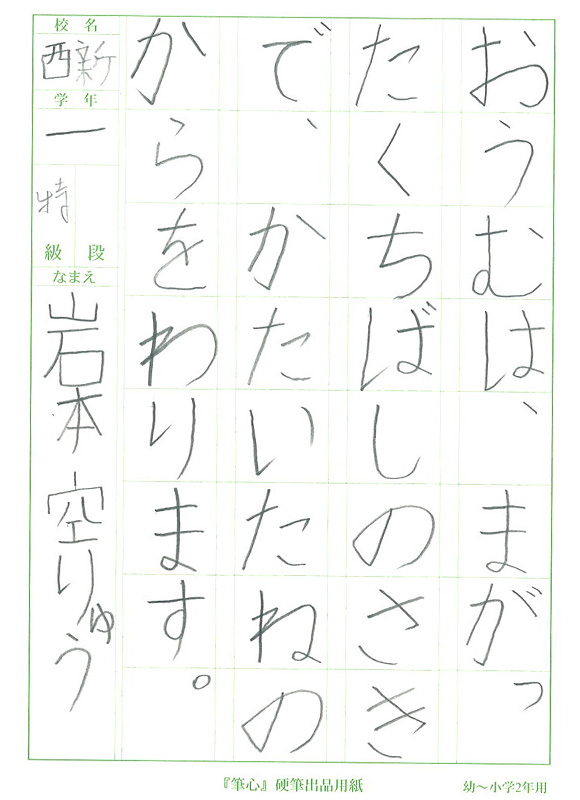 おうむは、まがっ
たくちばしのさき
で、かたいたねの
からをわります。
校名
西新
学年
一
特
級段
なまえ
岩本空りゅう
『筆心』硬筆出品用紙
幼～小学2年用